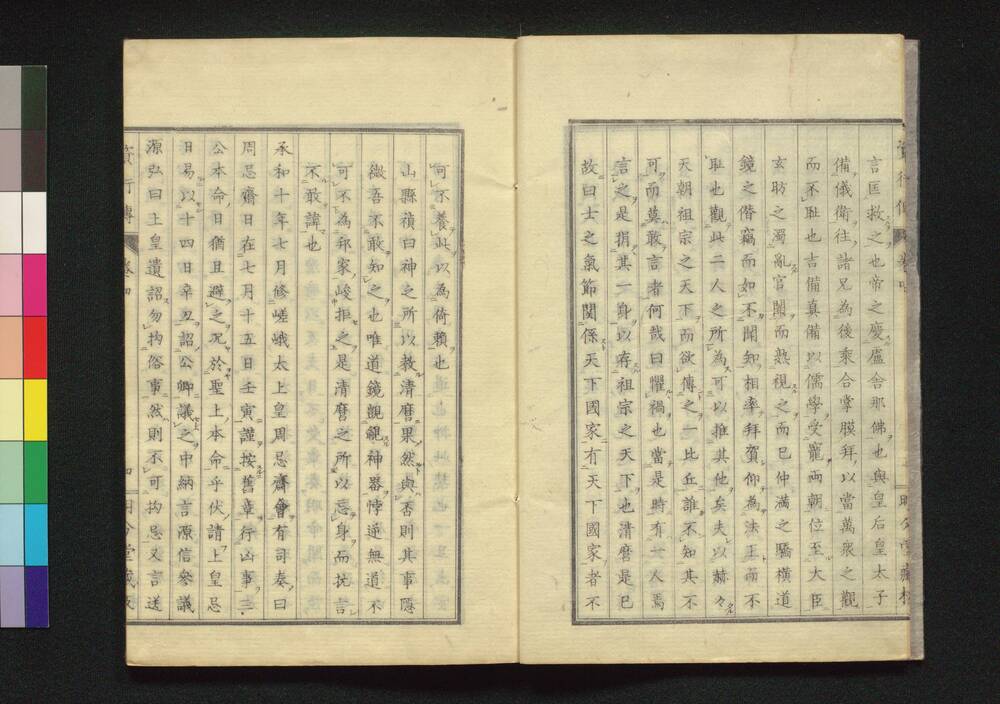 言匡救之也帝之慶盧舍那佛也與皇后皇太子
備儀衛往諸兄為後乘合掌膜拜以當萬衆之觀
而不耻也吉備真備以儒學受寵兩朝位至大臣
玄昉之濁亂官闈而熟視之而已仲滿之驕橫道
鏡之僭竊而如不聞知相率拜賀仰為法王而不
耻也觀此二人之所為可以推其他矣夫以赫々
天朝祖宗之天下而欲傳之一比丘誰不知其不
可而莫敢言者何哉曰懼禍也當是時有一人焉
言之是捐其一身以存祖宗之天下也清麿是已
故曰士之氣節関係天下國家有天下國家者不
可不養此以為倚賴也
山縣禎曰神之所以教清麿果然與否則其事隱
微吾不敢知之也唯道鏡覬覦神器悖逆無道不
可不為邦家峻拒之是清麿之所以忘身而抗言
不敢諱也
承和十年七月修嵯峨太上皇周忌齋會有司奏曰
周忌齋日在七月十五日壬寅謹按舊章行凶事三
公本命日猶且避之况於聖上本命乎伏請上皇忌
日易以十四日辛丑詔公卿議之中納言源信參議
源弘曰上皇遺詔勿拘俗事然則不可拘忌又言送